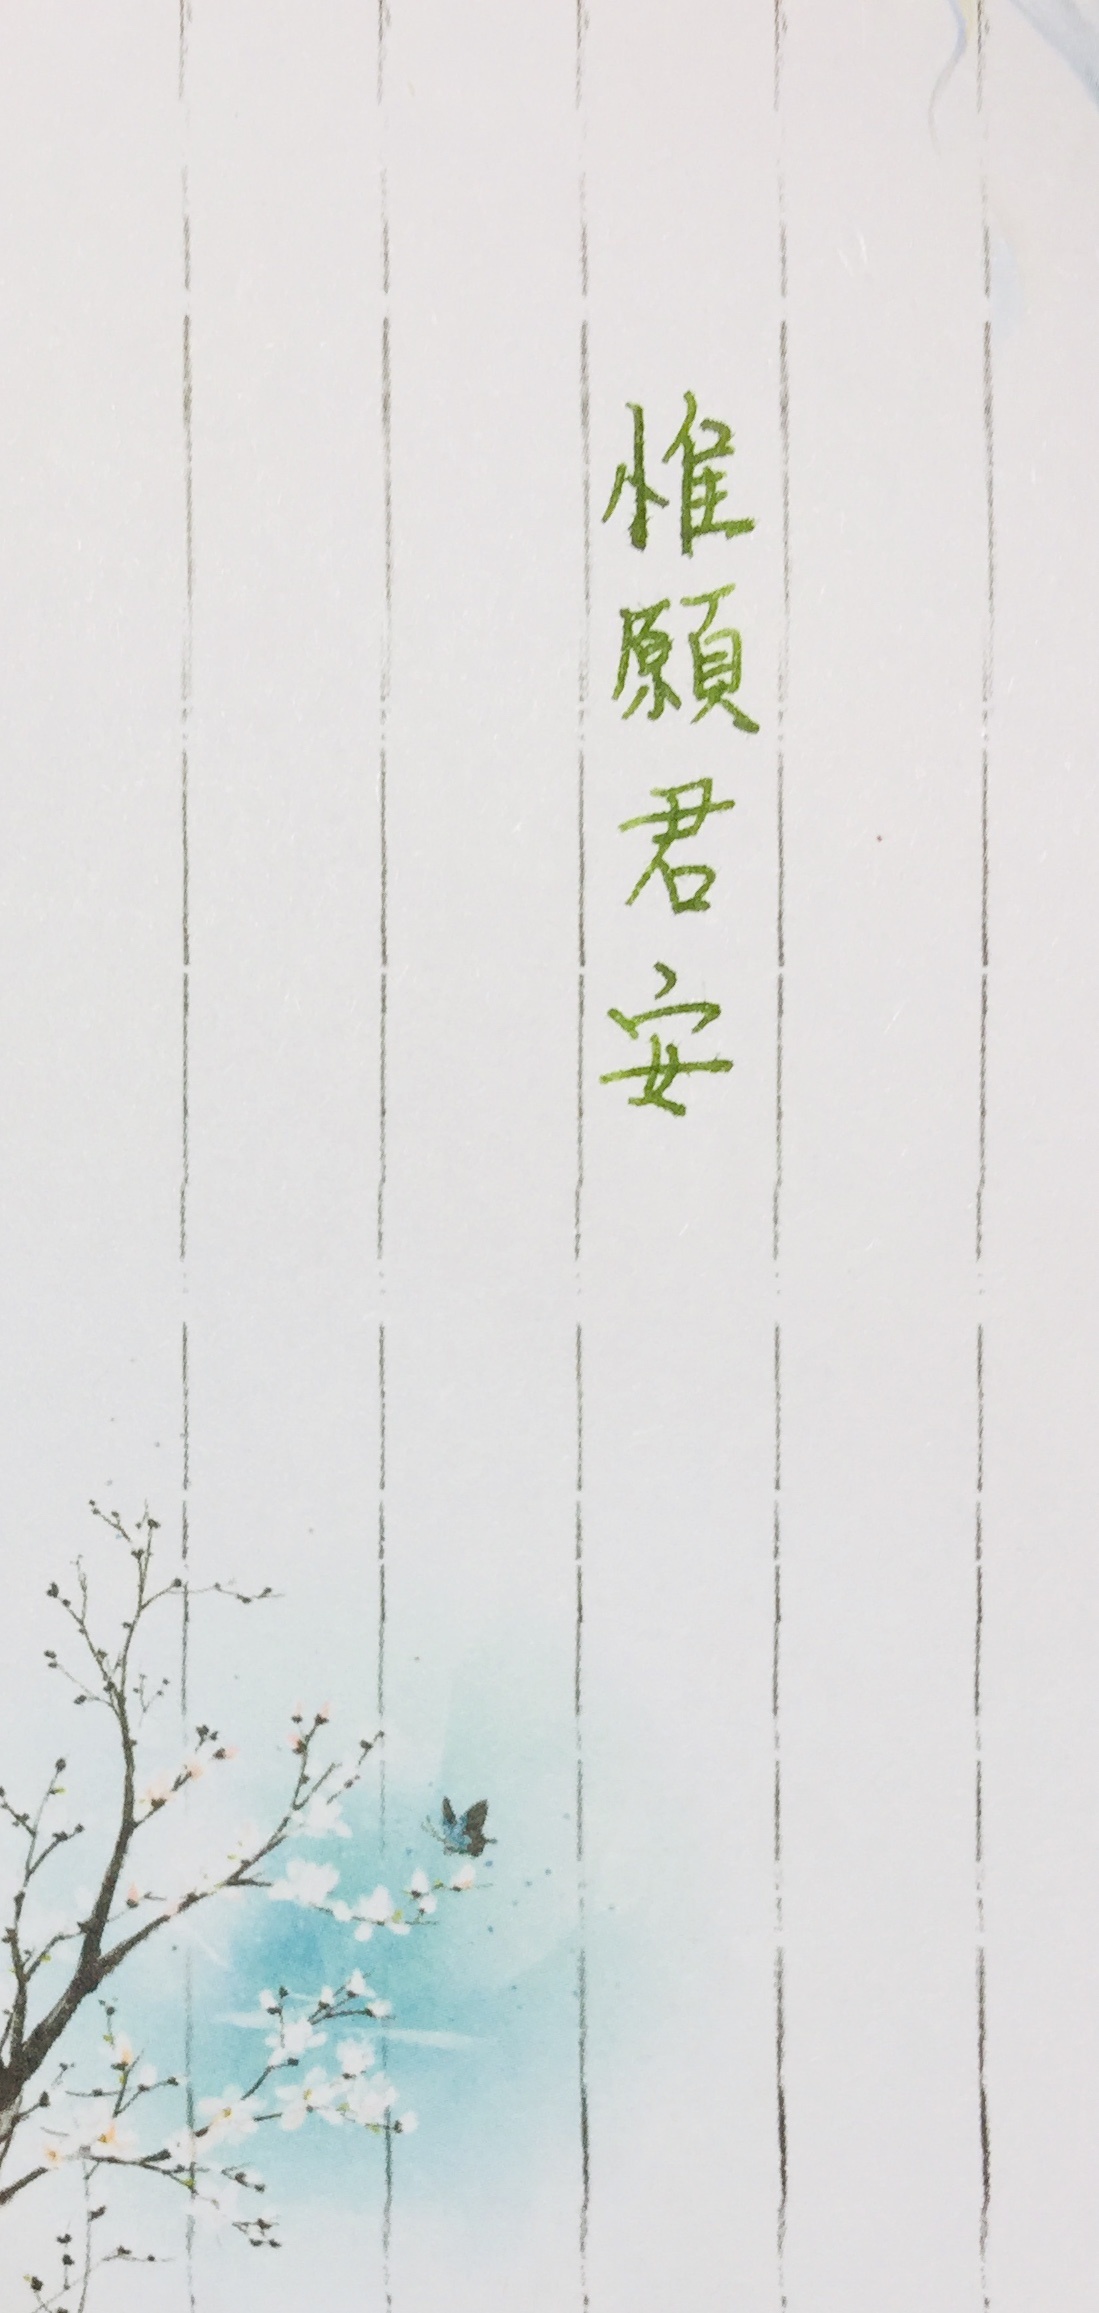 惟願君安